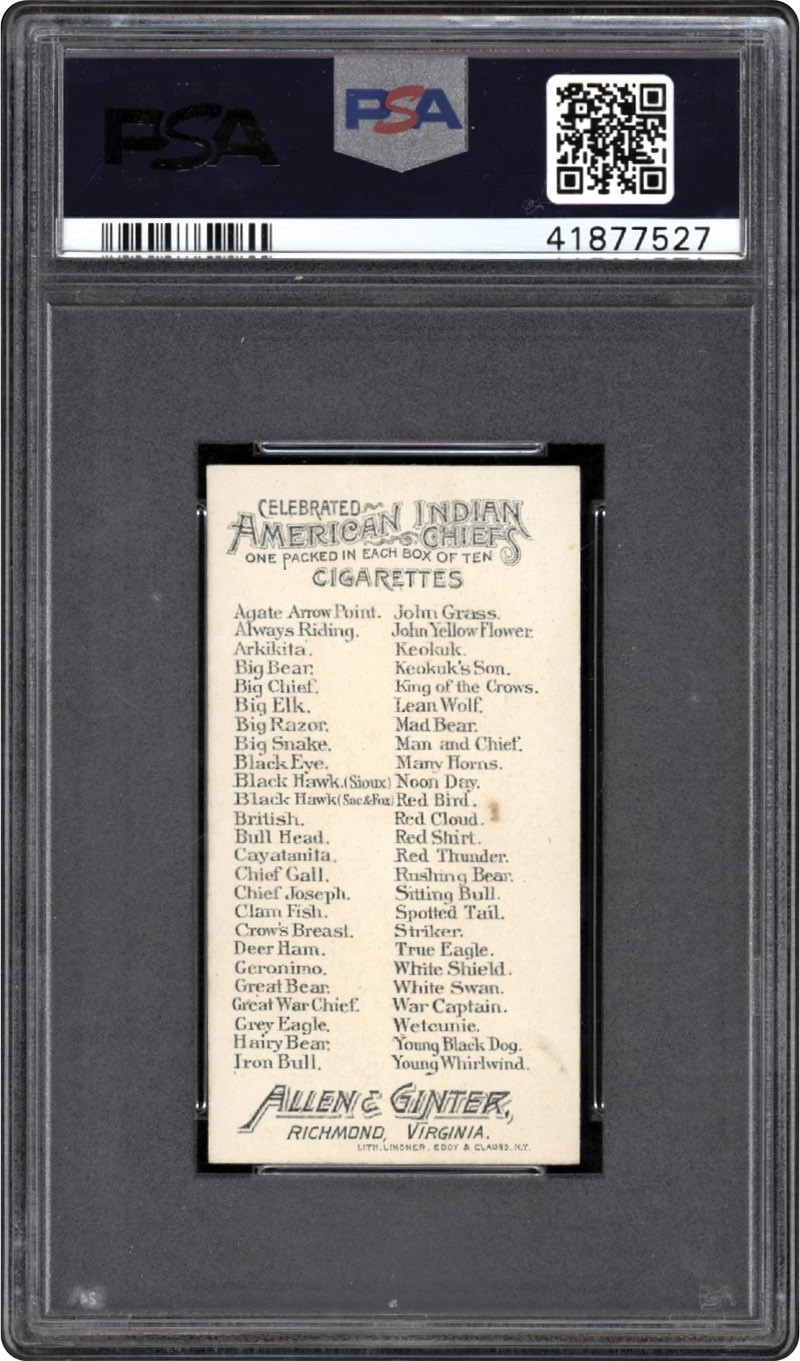 PSA PSA
41877527
CELEBRATED
AMERICAN INDIAN
CHIEFS
ONE PACKED IN EACH BOX OF TEN
CIGARETTES
Agate Arrow Point. John Grass.
Always Riding. John Yellow Flower.
Arkikita. Keokuk.
Big Bear. Keokuk's Son.
Big Chief. King of the Crows.
Big Elk. Lean Wolf.
Big Razor. Mad Bear.
Big Snake. Man and Chief.
Black Eye. Many Horns.
Black Hawk.(Sioux) Noon Day.
Black Hawk(Sac&Fox) Red Bird.
British. Red Cloud.
Bull Head. Red Shirt.
Cayatanita. Red Thunder.
Chief Gall. Rushing Bear.
Chief Joseph. Sitting Bull.
Clam Fish. Spotted Tail.
Crow's Breast. Striker.
Deer Ham. True Eagle.
Geronimo. White Shield.
Great Bear. White Swan.
Great War Chief. War Captain.
Grey Eagle. Wetcunie.
Hairy Bear. Young Black Dog.
Iron Bull. Young Whirlwind.
ALLEN & GINTER,
RICHMOND, VIRGINIA.
LITH. LINDNER, EDDY & CLAUSS. N.Y.
PSA